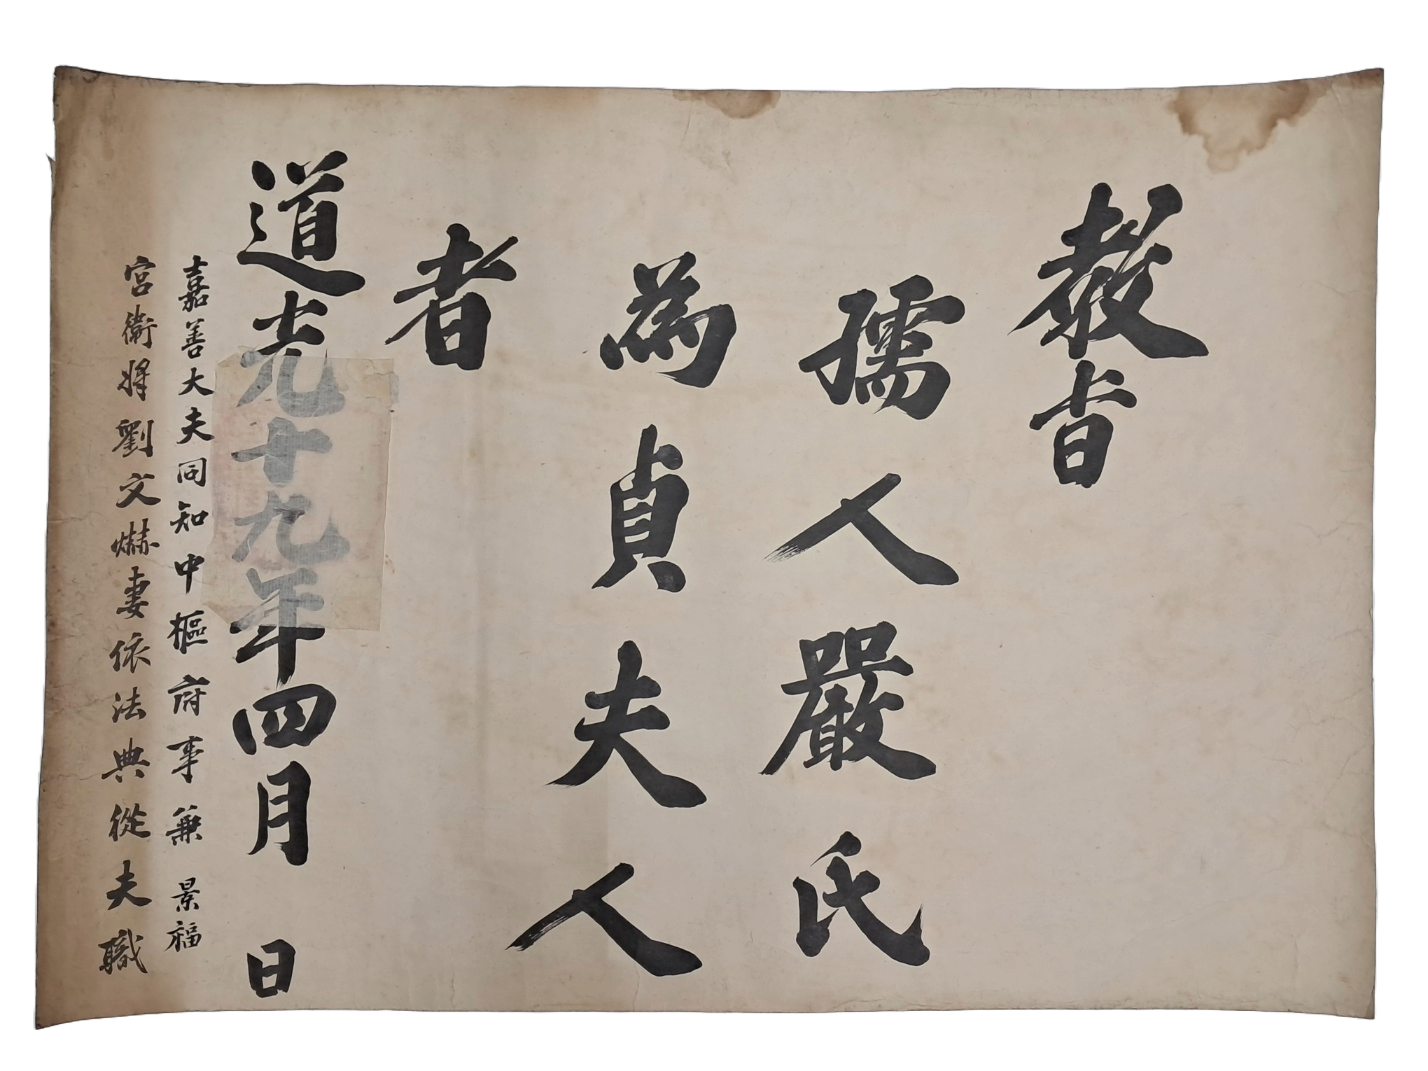 教旨
孺人嚴氏
爲貞夫人
者
道光十九年四月 日
嘉善大夫同知中樞府事兼 景福
宮衛將劉文爀妻依法典從夫職